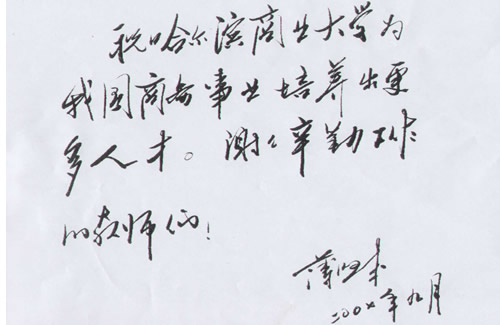 祝哈尔滨商业大学为
我国商务事业培养出更
多人才。谢々辛勤工作
的教师们！
薄熙来
二00年九月